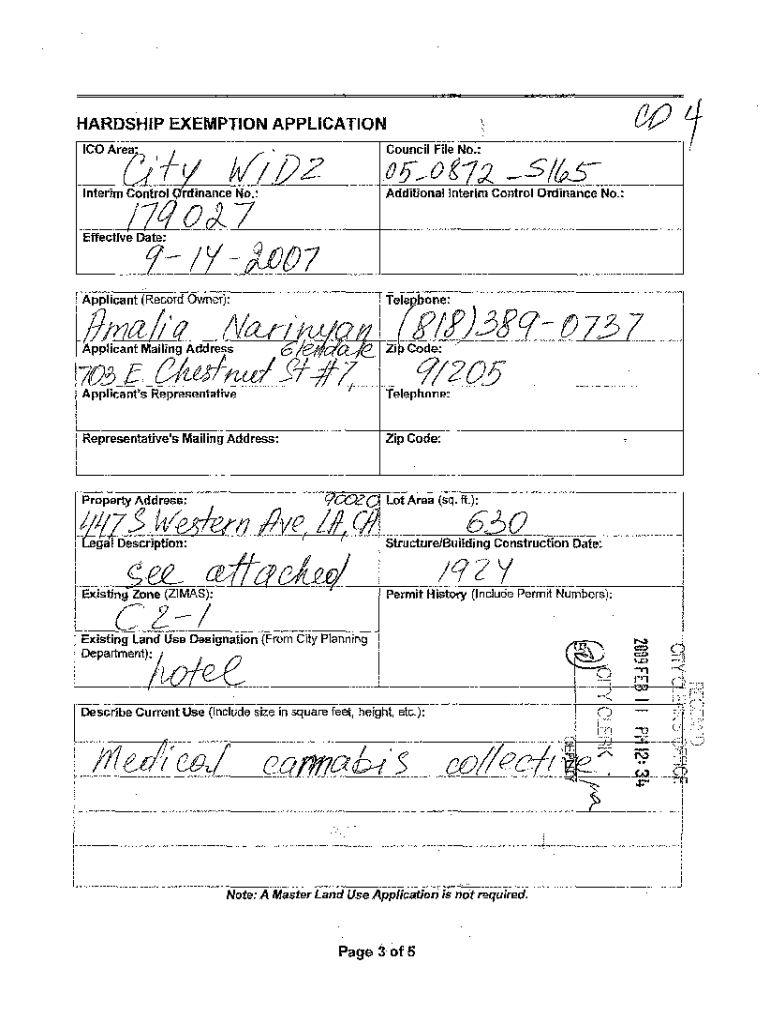 CD 4
HARDSHIP EXEMPTION APPLICATION
ICO Area:
City WiDE
Council File No.:
05-0872-S165
Interim Control Ordinance No.:
179027
Additional Interim Control Ordinance No.:
Effective Date:
9-14-2007
Applicant (Record Owner):
Amalia Narinyan
Telephone:
(818)389-0737
Applicant Mailing Address
703 E. Chestnut St #7, Glendale
Zip Code:
91205
Applicant's Representative
Telephone:
Representative's Mailing Address:
Zip Code:
Property Address:
447 S Western Ave, LA, CA 90020
Lot Area (sq. ft.):
630
Legal Description:
see attached
Structure/Building Construction Date:
1924
Existing Zone (ZIMAS):
C2-1
Permit History (Include Permit Numbers):
Existing Land Use Designation (From City Planning
Department):
hotel
RECEIVED
CITY CLERK'S OFFICE
2009 FEB 11 PM 12:34
CITY CLERK
DEPUTY
Describe Current Use (Include size in square feet, height, etc.):
Medical cannabis collective
Note: A Master Land Use Application is not required.
Page 3 of 5